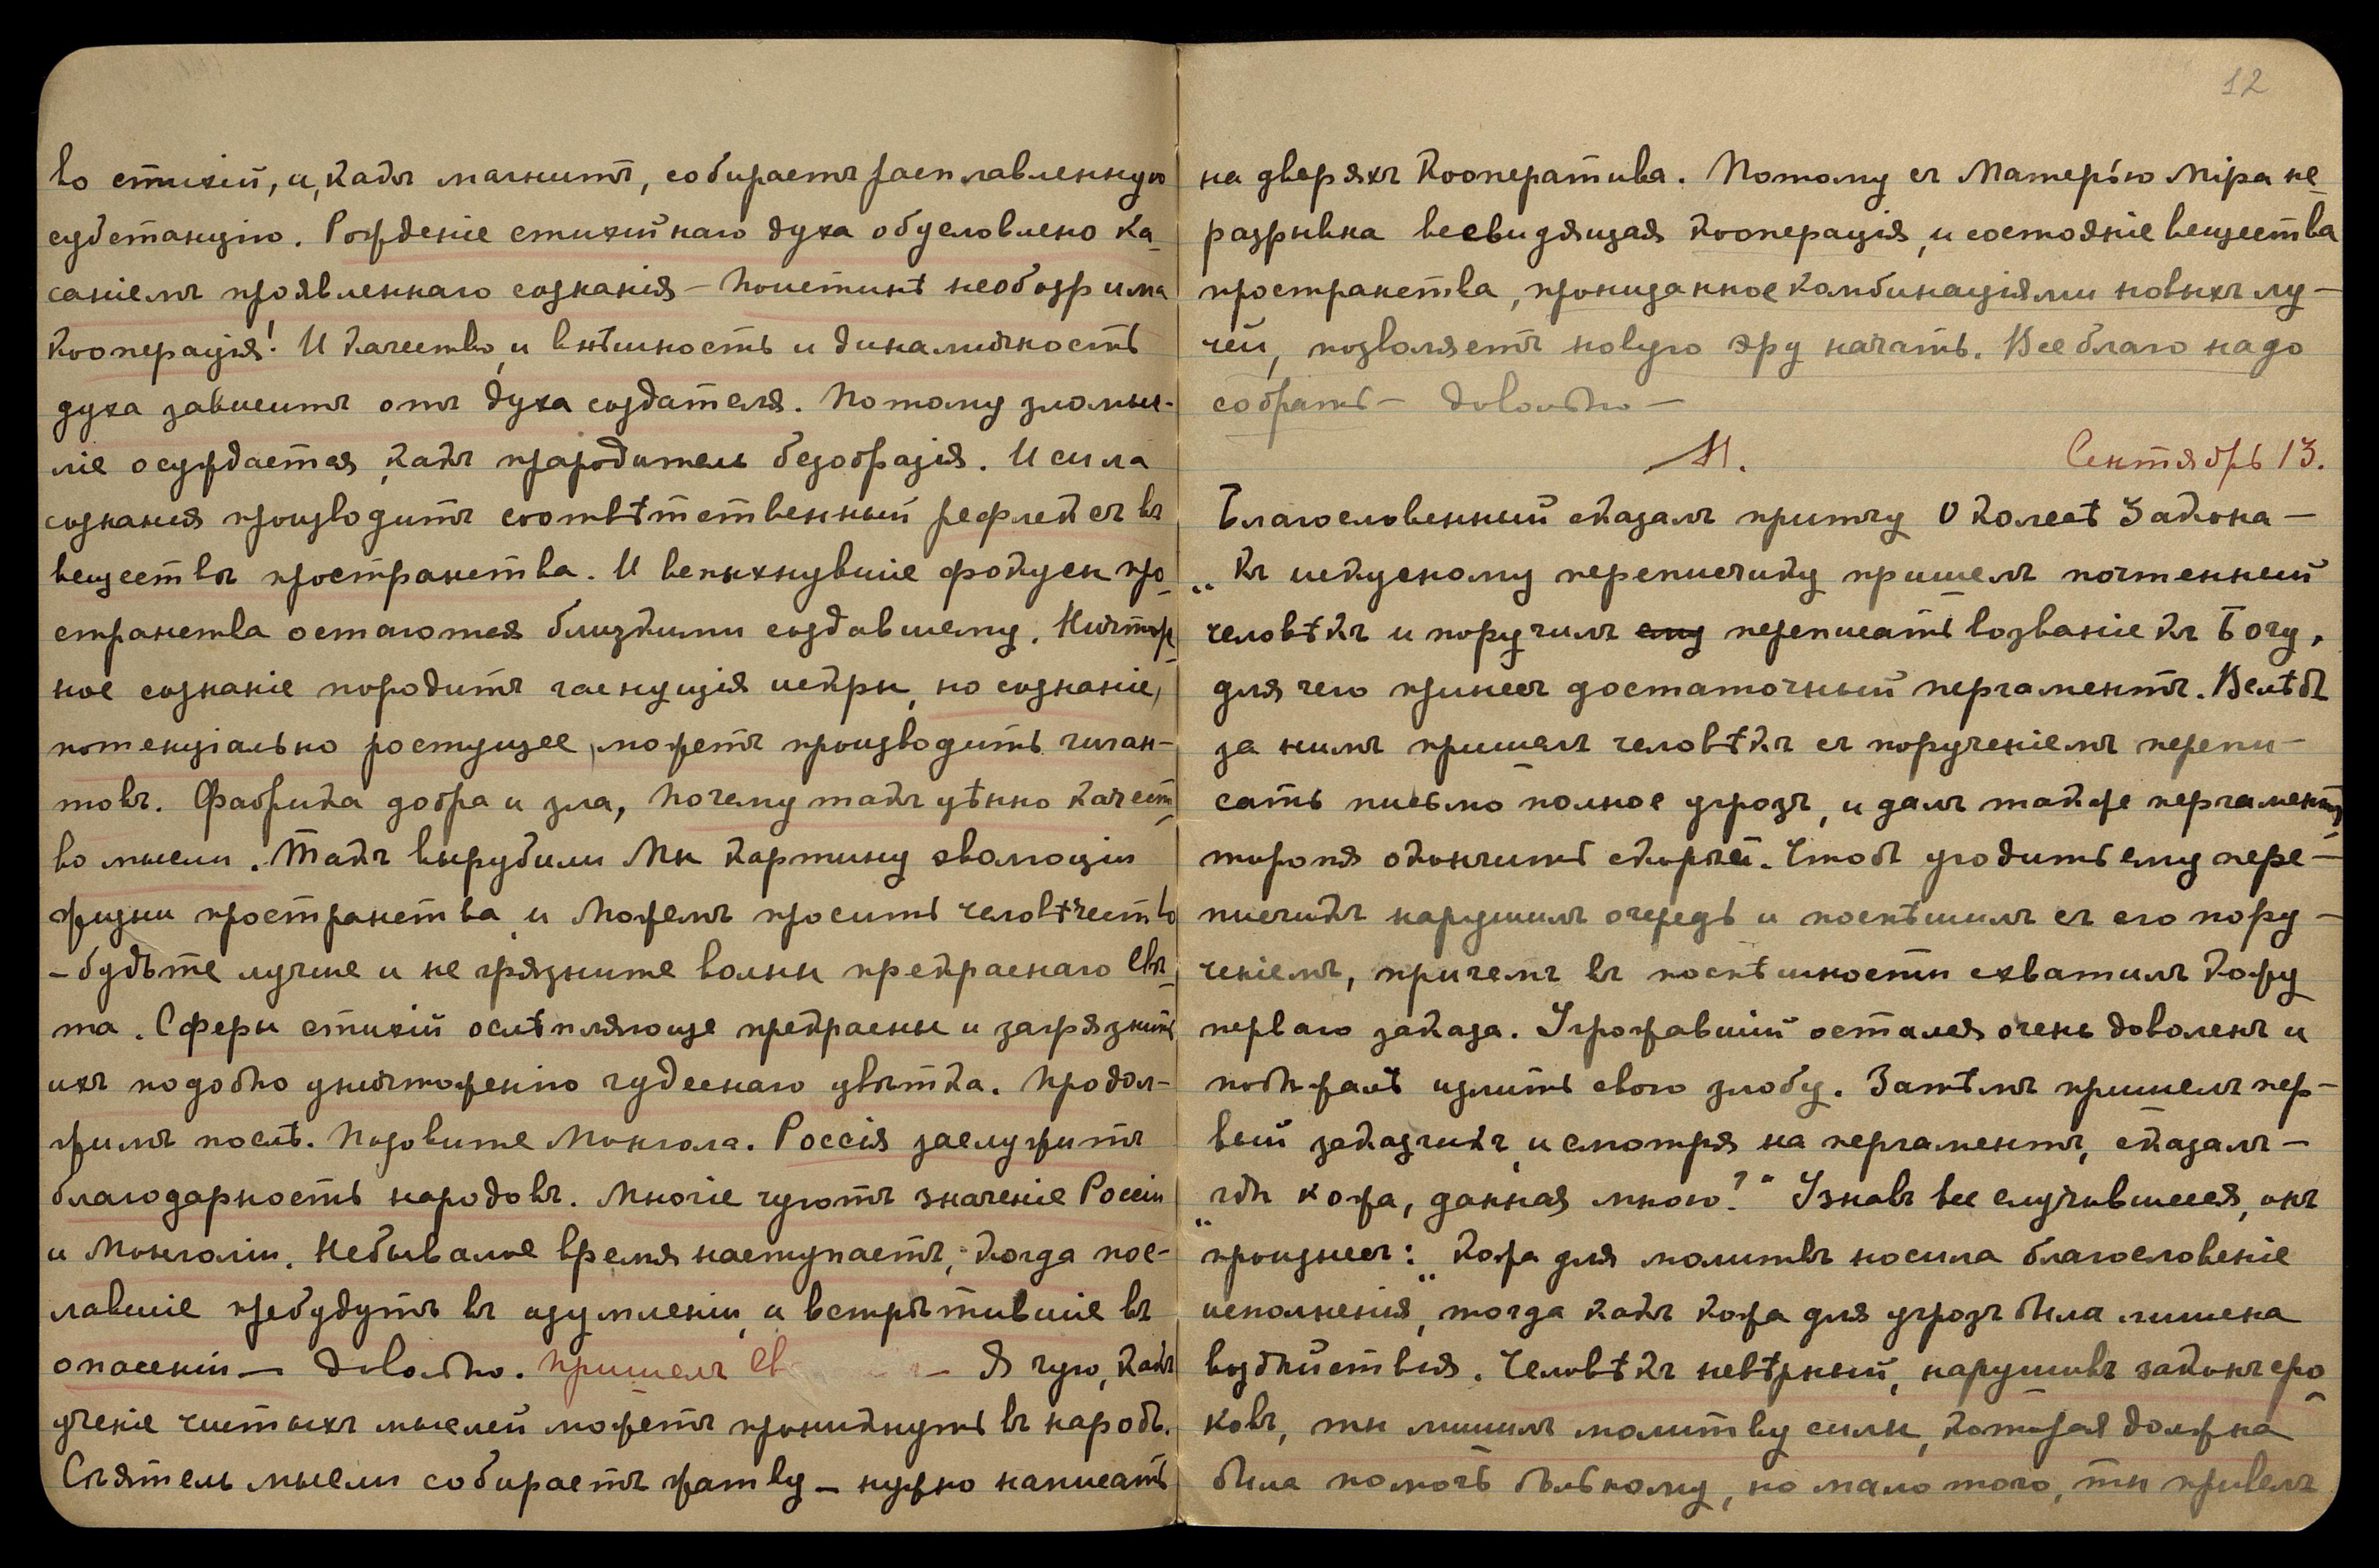 во стихiй, и, какъ магнитъ, собираетъ расплавленную
субстанцiю. Рожденiе стихiйнаго духа обусловлено ка-
санiемъ проявленнаго сознанiя – поистинѣ необозрима
кооперацiя! И качество, и внѣшность и динамичность
духа зависитъ отъ духа создателя. Потому зломыс-
лiе осуждается, какъ прародитель безобразiя. И сила
сознанiя производитъ соотвѣтственный рефлексъ въ
веществѣ пространства. И вспыхнувшiе фокусы про-
странства остаются близкими создавшему. Ничтож-
ное сознанiе породитъ гаснущiя искры, но сознанiе,
потенцiально ростущее, можетъ производить гиган-
товъ. Фабрика добра и зла, почему такъ цѣнно качест-
во мысли. Такъ вырубили Мы картину эволюцiи
жизни пространства, и Можемъ просить человѣчество
– будьте лучше и не грязните волны прекраснаго Свѣ-
та. Сферы стихiй ослѣпляюще прекрасны и загрязнить
ихъ подобно уничтоженiю чудеснаго цвѣтка. Продол-
жимъ послѣ. Позовите Монгола. Россiя заслужитъ
благодарность народовъ. Многiе чуютъ значенiе Россiи
и Монголiи. Небывалое время наступаетъ, когда пос-
лавшiе пребудутъ въ изумленiи, а встрѣтившiе въ
опасенiи – довольно. Пришелъ – Я чую, какъ
ученiе чистыхъ мыслей можетъ проникнуть въ народъ.
Сѣятель мысли собираетъ жатву – нужно написать
12
на дверяхъ кооператива. Потому съ Матерью Мiра не-
разрывна всевидящая кооперацiя, и состоянiе вещества
пространства, пронизанное комбинацiями новыхъ лу-
чей, позволяетъ новую эру начать. Все благо надо
собрать – довольно –
М. Сентябрь 13.
Благословенный сказалъ притчу о колесѣ Закона –
„Къ искусному переписчику пришелъ почтенный
человѣкъ и поручилъ ему переписать воззванiе къ Богу,
для чего принесъ достаточный пергаментъ. Вслѣдъ
за нимъ пришелъ человѣкъ съ порученiемъ перепи-
сать письмо полное угрозъ, и далъ также пергаментъ,
торопя окончить скорѣй. Чтобъ угодить ему пере-
писчикъ нарушилъ очередь и поспѣшилъ съ его пору-
ченiемъ, причемъ въ поспѣшности схватилъ кожу
перваго заказа. Угрожавшiй остался очень доволенъ и
побѣжалъ излить свою злобу. Затѣмъ пришелъ пер-
вый заказчикъ, и смотря на пергаментъ, сказалъ –
„гдѣ кожа, данная мною?“ Узнавъ все случившееся, онъ
произнесъ: „кожа для молитвъ носила благословенiе
исполненiя, тогда какъ кожа для угрозъ была лишена
воздѣйствiя. Человѣкъ невѣрный, нарушивъ законъ сро-
ковъ, ты лишилъ молитву силы, которая должна
была помочь больному, но мало того, ты привелъ